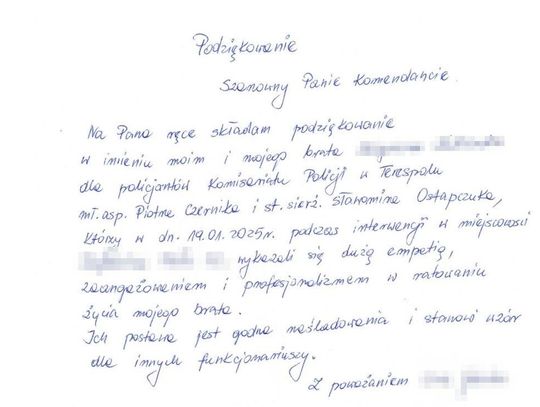 Podziękowanie
Szanowny Panie Komendancie.
Na Pana ręce składam podziękowanie
w imieniu moim i mojego brata
dla policjantów Komisariatu Policji w Terespolu
mł. asp. Piotra Czernika i st. sierż. Sławomira Ostapczuka,
którzy w dn. 19.01.2025r. podczas interwencji w miejscowości
wykazali się dużą empatią,
zaangażowaniem i profesjonalizmem w ratowaniu
życia mojego brata.
Ich postawa jest godna naśladowania i stanowi wzór
dla innych funkcjonariuszy.
Z poważaniem